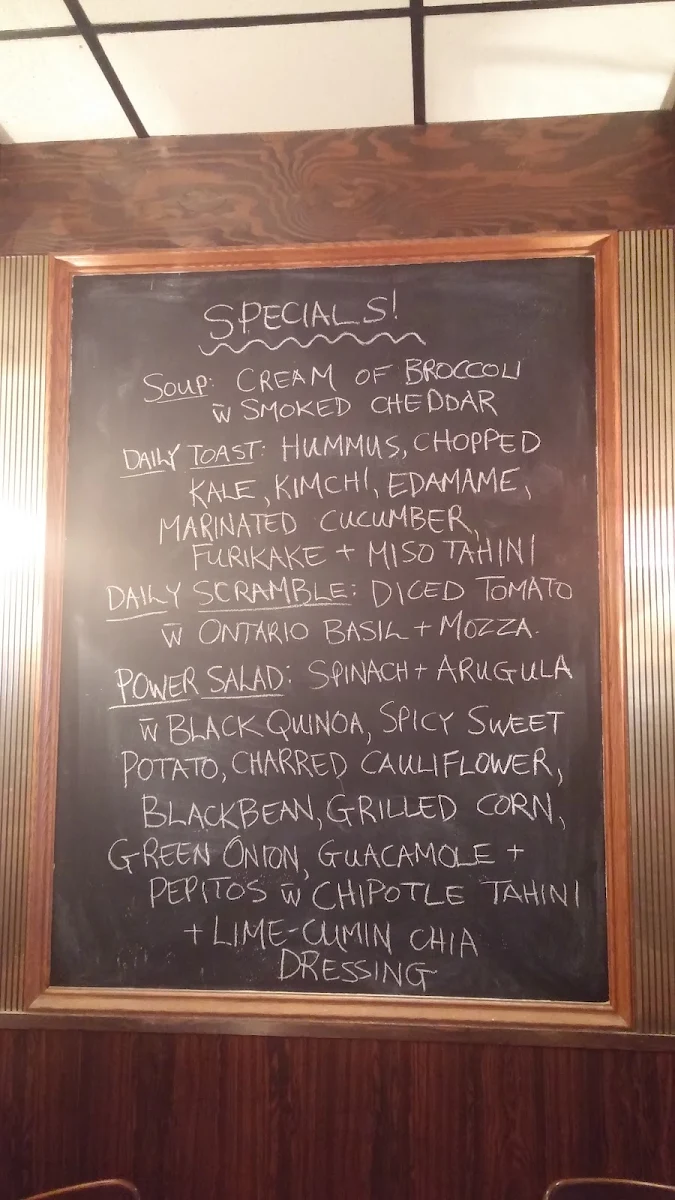 SPECIALS!
SOUP: CREAM OF BROCCOLI
w̄ SMOKED CHEDDAR
DAILY TOAST: HUMMUS, CHOPPED
KALE, KIMCHI, EDAMAME,
MARINATED CUCUMBER,
FURIKAKE + MISO TAHINI
DAILY SCRAMBLE: DICED TOMATO
w̄ ONTARIO BASIL + MOZZA.
POWER SALAD: SPINACH + ARUGULA
w̄ BLACK QUINOA, SPICY SWEET
POTATO, CHARRED CAULIFLOWER,
BLACKBEAN, GRILLED CORN,
GREEN ONION, GUACAMOLE +
PEPITOS w̄ CHIPOTLE TAHINI
+ LIME-CUMIN CHIA
DRESSING